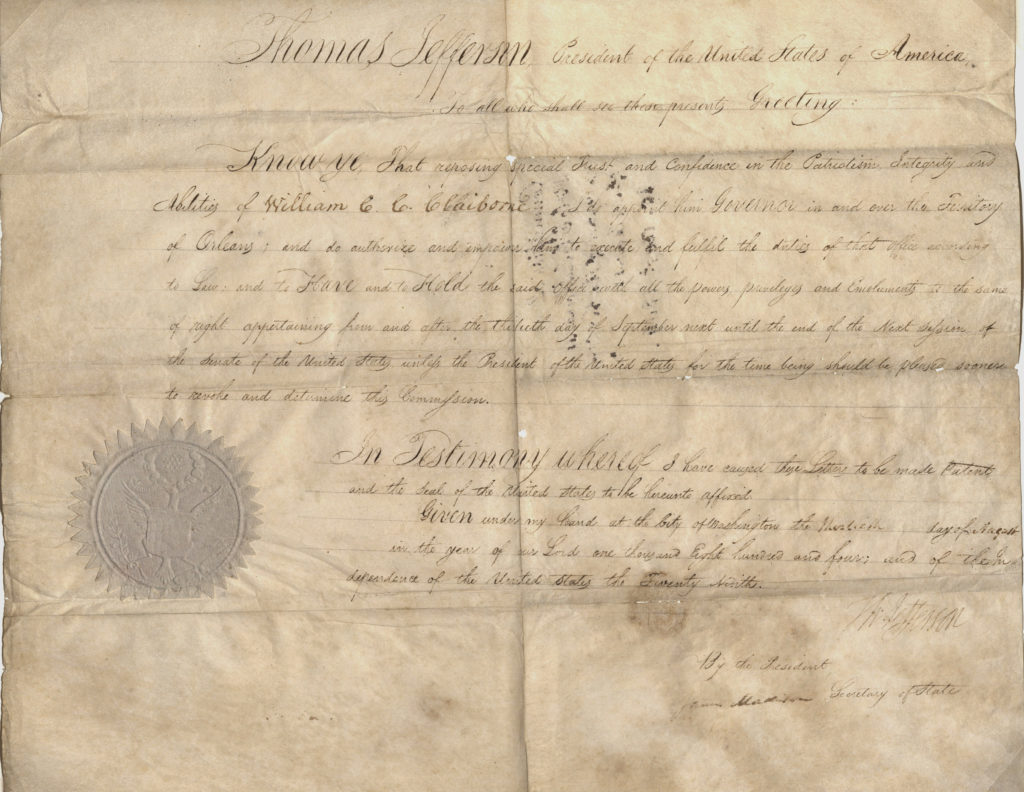 Thomas Jefferson, President of the United States of America,
To all who shall see these presents Greeting:
Know ye, That reposing special Trust and Confidence in the Patriotism, Integrity and
Abilities of William C. C. Claiborne I do appoint him Governor in and over the Territory
of Orleans; and do authorize and empower him to execute and fulfil the duties of that office according
to Law: and to Have and to Hold the said office with all the powers, privileges and Emoluments to the same
of right appertaining from and after the thirtieth day of September next until the end of the Next session of
the Senate of the United States, unless the President of the United States for the time being should be pleased sooner
to revoke and determine this Commission.
In Testimony whereof I have caused these Letters to be made Patent
and the Seal of the United States to be hereunto affixed.
Given under my hand at the City of Washington the day of August
in the year of our Lord one thousand Eight hundred and four; and of the In-
dependence of the United States the Twenty Ninth.
Th: Jefferson
By the President
James Madison Secretary of State